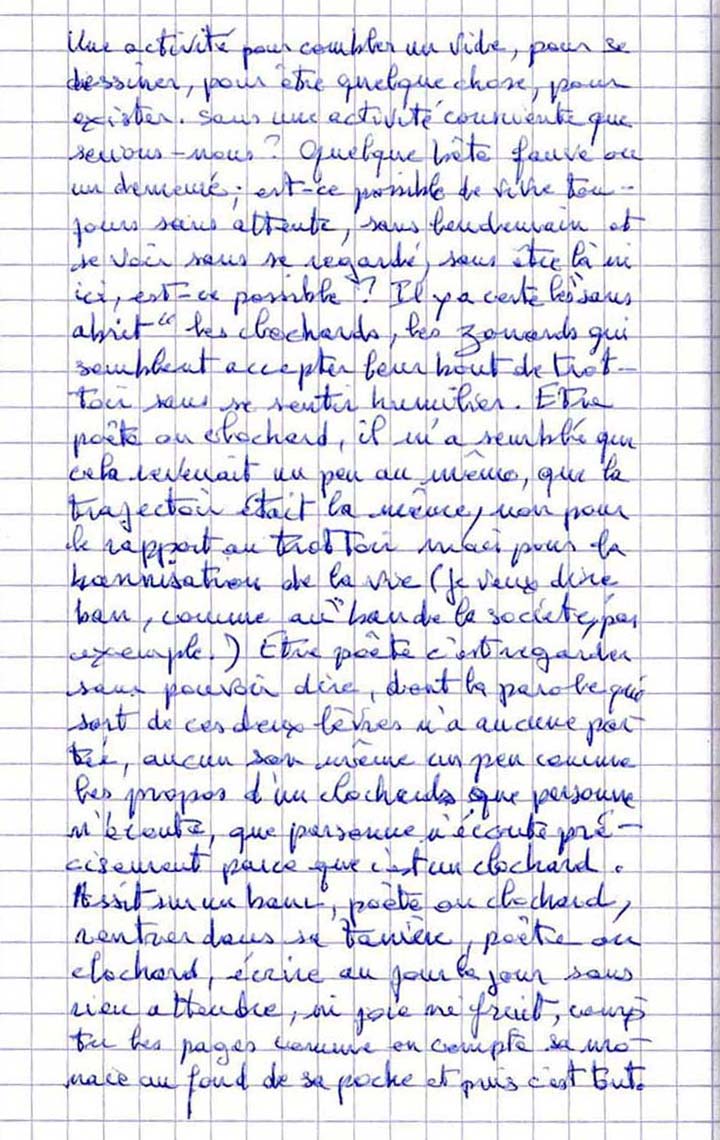 Une activité pour combler un vide, pour se
dessiner, pour être quelque chose, pour
exister. Sans une activité consciente que
serions-nous ? Quelque bête fauve ou
un demeuré ; est-ce possible de vivre tou-
jours sans attente, sans lendemain et
se voir sans se regardé, sans être là ni
ici, est-ce possible ? Il y a certe les "sans
abrit" les clochards, les zonards qui
semblent accepter leur bout de trot-
toir sans se sentir humilier. Etre
poète ou clochard, il m'a semblé que
cela revenait un peu au même, que la
trajectoir était la même, non pour
le rapport au trottoir mais pour la
bannisation de la vie (je veux dire
ban, comme au "ban de la société, par
exemple.) Etre poète c'est regarder
sans pouvoir dire, dont la parole qui
sort de ces deux lèvres n'a aucune por-
tée, aucun son même un peu comme
les propos d'un clochards que personne
n'écoute, que personne n'écoute pré-
cisement parce que c'est un clochard.
Assit sur un banc, poète ou clochard,
rentrer dans sa tanière, poète ou
clochard, écrire au jour le jour sans
rien attendre, ni joie ni fruit, comp
ter les pages comme on compte sa mo-
naie au fond de sa poche et puis c'est tout.